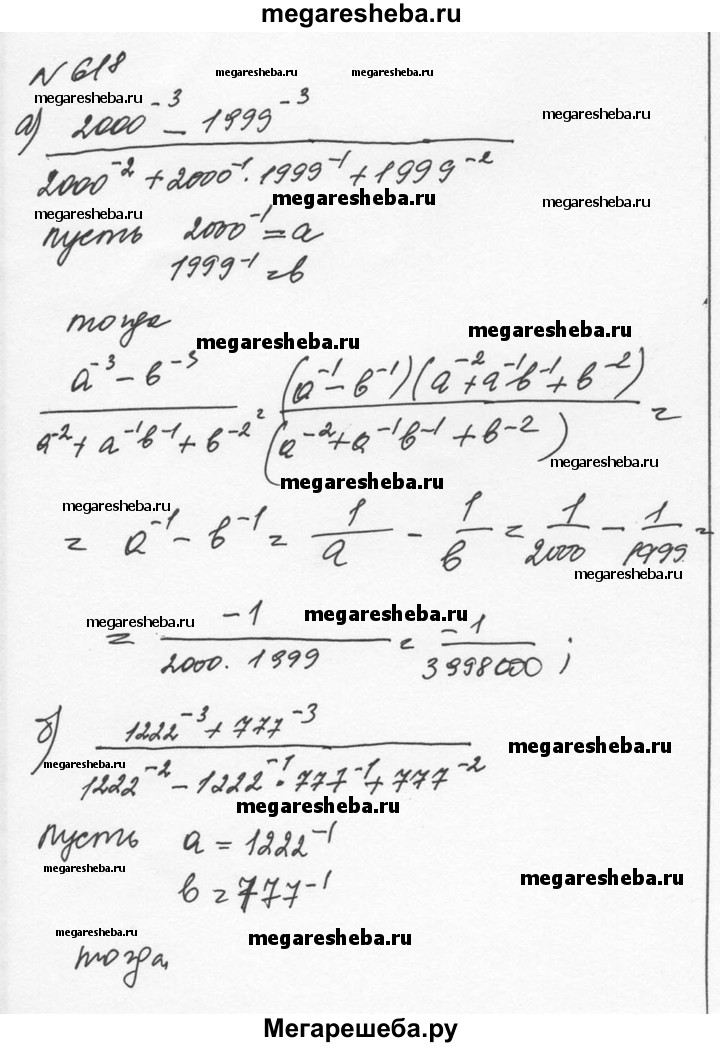 megaresheba.ru
N 618
megaresheba.ru megaresheba.ru
megaresheba.ru
megaresheba.ru
а) (2000^-3 - 1999^-3) / (2000^-2 + 2000^-1 · 1999^-1 + 1999^-2)
megaresheba.ru
megaresheba.ru
megaresheba.ru
пусть 2000^-1 = a
1999^-1 = b
тогда
megaresheba.ru
megaresheba.ru
(a^-3 - b^-3) / (a^-2 + a^-1 b^-1 + b^-2) = (a^-1 - b^-1)(a^-2 + a^-1 b^-1 + b^-2) / (a^-2 + a^-1 b^-1 + b^-2) =
megaresheba.ru
megaresheba.ru
megaresheba.ru
= a^-1 - b^-1 = 1/a - 1/b = 1/2000 - 1/1999 =
megaresheba.ru
megaresheba.ru
megaresheba.ru
= -1 / (2000 · 1999) = -1 / 3998000 ;
б) (1222^-3 + 777^-3) / (1222^-2 - 1222^-1 · 777^-1 + 777^-2)
megaresheba.ru
megaresheba.ru
megaresheba.ru
пусть a = 1222^-1
megaresheba.ru
megaresheba.ru
b = 777^-1
megaresheba.ru
megaresheba.ru
тогда
Мегарешеба.ру